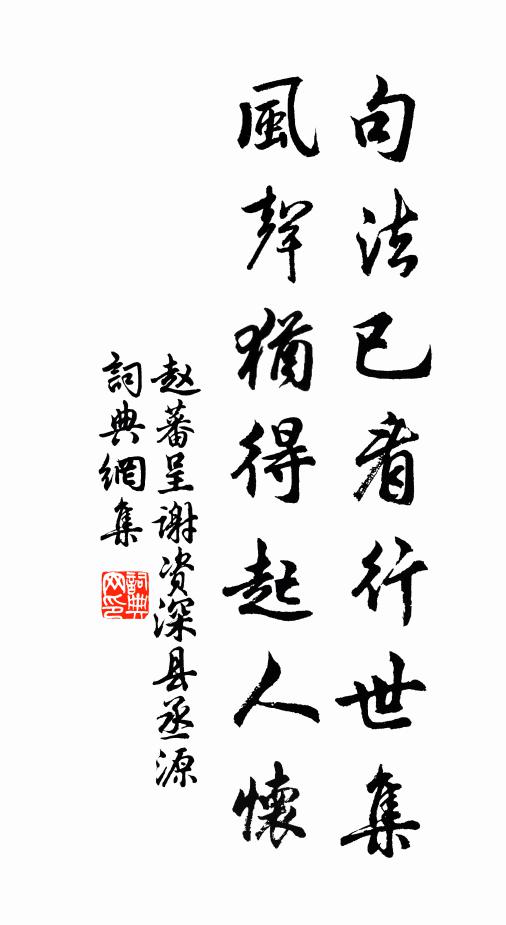 句法已看行世集
風聲猶得起人懷
赵蕃呈谢资深县丞源
詞典網集
詞典网印